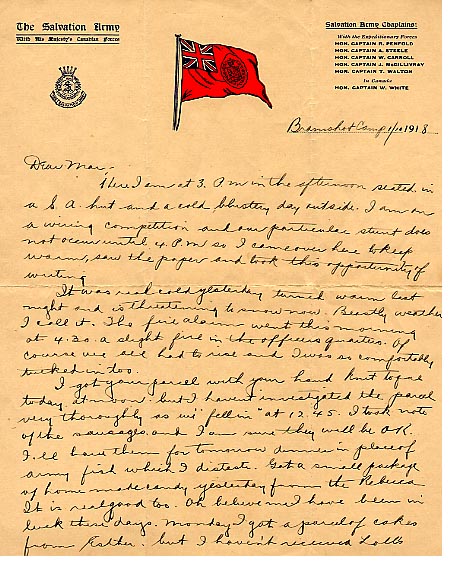 The Salvation Army
With His Majesty's Canadian Forces
Salvation Army Chaplains:
With the Expeditionary Forces
HON. CAPTAIN R. PENFOLD
HON. CAPTAIN A. STEELE
HON. CAPTAIN W. CARROLL
HON. CAPTAIN J. McGILLIVRAY
HON. CAPTAIN T. WALTON
In Canada
HON. CAPTAIN W. WHITE
Bramshot Camp 1918
Dear Mar.
Here I am at 3. P.m in the afternoon seated in
a S.A. hut and a cold blustery day outside. I am on
a wiring competition and our particular stunt does
not occur until 4. P.m so I came over here to keep
warm, saw the paper and took this opportunity of
writing
It was real cold yesterday turned warm last
night and is threatening to snow now. Beastly weather
I call it. The fire alarm went this morning
at 4.30. a slight fire in the officers quarters. Of
course we all had to rise and I was so comfortably
tucked in too.
I got your parcel with your hand knit
today at noon but I haven't investigated the parcel
very thoroughly as we "fell in" at 12.45. I took note
of the sausages and I am sure they will be OK.
I'll have them for tomorrow dinner in place of
army fish which I distaste. Got a small package
of home made candy yesterday from the Rebecca
It is real good too. Oh believe me I have been in
luck these days. Monday I got a parcel of cakes
from Esther. but I haven't received